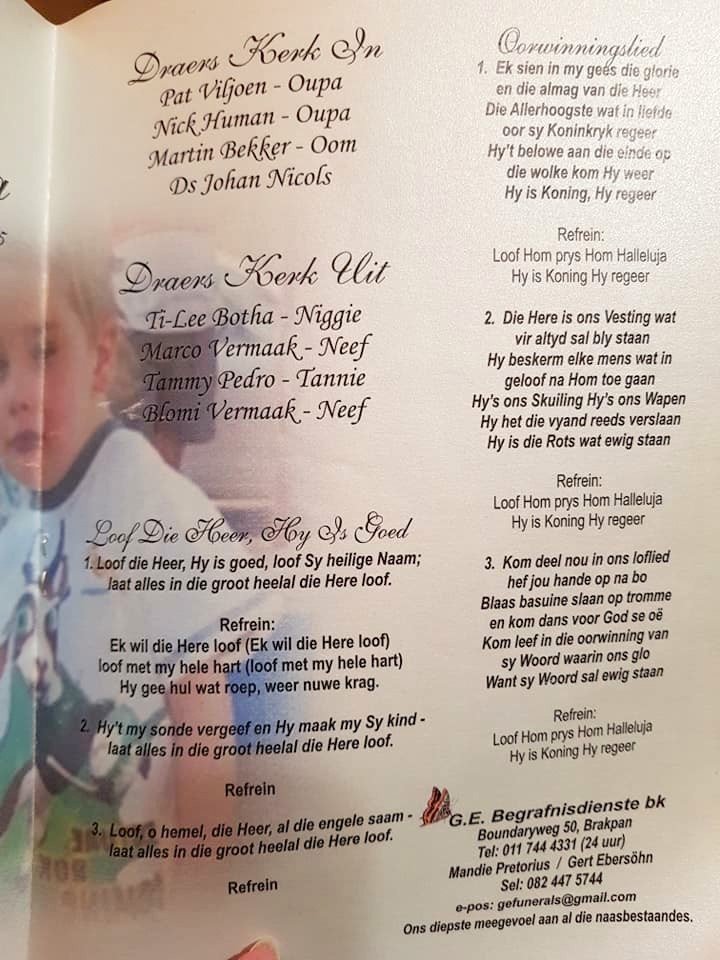 Draers Kerk In
Pat Viljoen - Oupa
Nick Human - Oupa
Martin Bekker - Oom
Ds Johan Nicols
Draers Kerk Uit
Ti-Lee Botha - Niggie
Marco Vermaak - Neef
Tammy Pedro - Tannie
Blomi Vermaak - Neef
Loof Die Heer, Hy Is Goed
1. Loof die Heer, Hy is goed, loof Sy heilige Naam;
laat alles in die groot heelal die Here loof.
Refrein:
Ek wil die Here loof (Ek wil die Here loof)
loof met my hele hart (loof met my hele hart)
Hy gee hul wat roep, weer nuwe krag.
2. Hy't my sonde vergeef en Hy maak my Sy kind -
laat alles in die groot heelal die Here loof.
Refrein
3. Loof, o hemel, die Heer, al die engele saam -
laat alles in die groot heelal die Here loof.
Refrein
Oorwinningslied
1. Ek sien in my gees die glorie
en die almag van die Heer
Die Allerhoogste wat in liefde
oor sy Koninkryk regeer
Hy't belowe aan die einde op
die wolke kom Hy weer
Hy is Koning, Hy regeer
Refrein:
Loof Hom prys Hom Halleluja
Hy is Koning Hy regeer
2. Die Here is ons Vesting wat
vir altyd sal bly staan
Hy beskerm elke mens wat in
geloof na Hom toe gaan
Hy's ons Skuiling Hy's ons Wapen
Hy het die vyand reeds verslaan
Hy is die Rots wat ewig staan
Refrein:
Loof Hom prys Hom Halleluja
Hy is Koning Hy regeer
3. Kom deel nou in ons loflied
hef jou hande op na bo
Blaas basuine slaan op tromme
en kom dans voor God se oë
Kom leef in die oorwinning van
sy Woord waarin ons glo
Want sy Woord sal ewig staan
Refrein:
Loof Hom prys Hom Halleluja
Hy is Koning Hy regeer
G.E. Begrafnisdienste bk
Boundaryweg 50, Brakpan
Tel: 011 744 4331 (24 uur)
Mandie Pretorius / Gert Ebersöhn
Sel: 082 447 5744
e-pos: gefunerals@gmail.com
Ons diepste meegevoel aan al die naasbestaandes.